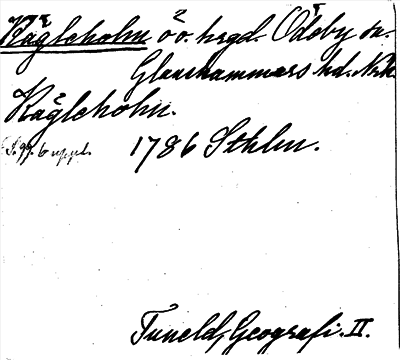 Kägleholm ö o. hrgd. Ödeby sn.
Glanshammars hd. Nrk.
Kägleholm.
S. 99. 6 uppl. 1786 Sthlm.
Tuneld, Geografi. II.